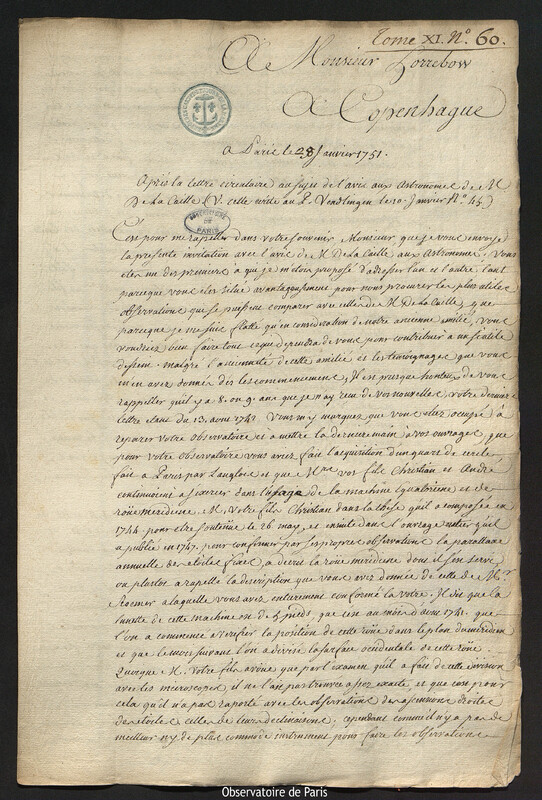 Tome XI. N.º 60.
A Monsieur Horrebow
A Copenhague
A Paris le 28 Janvier 1751.
Après la lettre circulaire au sujet de l'avis aux Astronomes de M.
De La Caille (V. celle écrite au P. Vendlingen le 10. Janvier N.º 45.)
C'est pour me rapeller dans votre souvenir Monsieur, que je vous envoye
la presente invitation avec l'avis de M. De la Caille aux Astronomes. Vous
etes un des premiers a qui je m'etois proposé d'adresser l'un et l'autre, tant
parceque vous etes situé avantageusement pour nous procurer les plus utiles
observations qui se puissent comparer avec celles de M. De la Caille, que
parceque je me suis flatté qu'en consideration de notre ancienne amitié, vous
voudriez bien faire tout ce que dependra de vous pour contribuer a un si utile
dessein. malgré l'ancienneté de cette amitié et les temoignages que vous
m'en avez donnés des les commencements, il est presque honteux de vous
rappeller qu'il y a 8. ou 9. ans que je n'ay reçu de vos nouvelles, votre derniere
lettre etant du 13. avril 1742. Vous m'y marquez que vous etiez occupé à
reparer votre observatoire et a mettre la derniere main à vos ouvrages, que
pour votre observatoire vous aviez fait l'acquisition d'un quart de cercle,
fait a Paris par Langlois et que Mrs. vos fils Christian et André
continuoient a s'exercer dans l'usage de la machine Equatoriene et de
roüe meridiene. M. Votre fils Christian dans la these qu'il a composée en
1744. pour etre soutenüe le 26. may, et ensuite dans l'ouvrage entier qu'il
a publié en 1747. pour confirmer par ses propres observations la parallaxe
annuelle des etoiles fixes, a decrit la roüe meridiene dont il s'est servi
ou plustot a rapellé la description que vous avez donnée de celle de Mr.
Roemer a laquelle vous avez entierement conformé la votre. Il dit que la
lunette de cette machine est de 5 pieds, que c'est au mois d'avril 1742. que
l'on a commencé a verifier la position de cette roüe dans le plan du meridien
et que le mois suivant l'on a divisé la surface occidentale de cette roüe.
Quoyque M. votre fils avoüe que par l'examen qu'il a fait de cette division
avec les microscopes, il ne l'ait pas trouvée assez exacte, et que c'est pour
cela qu'il n'a pas raporté avec les observations des ascensions droites
des etoiles celles de leurs declinaisons; cependant comme il n'y a pas de
meilleur ny de plus commode instrument pour faire les observations
Observatoire de Paris